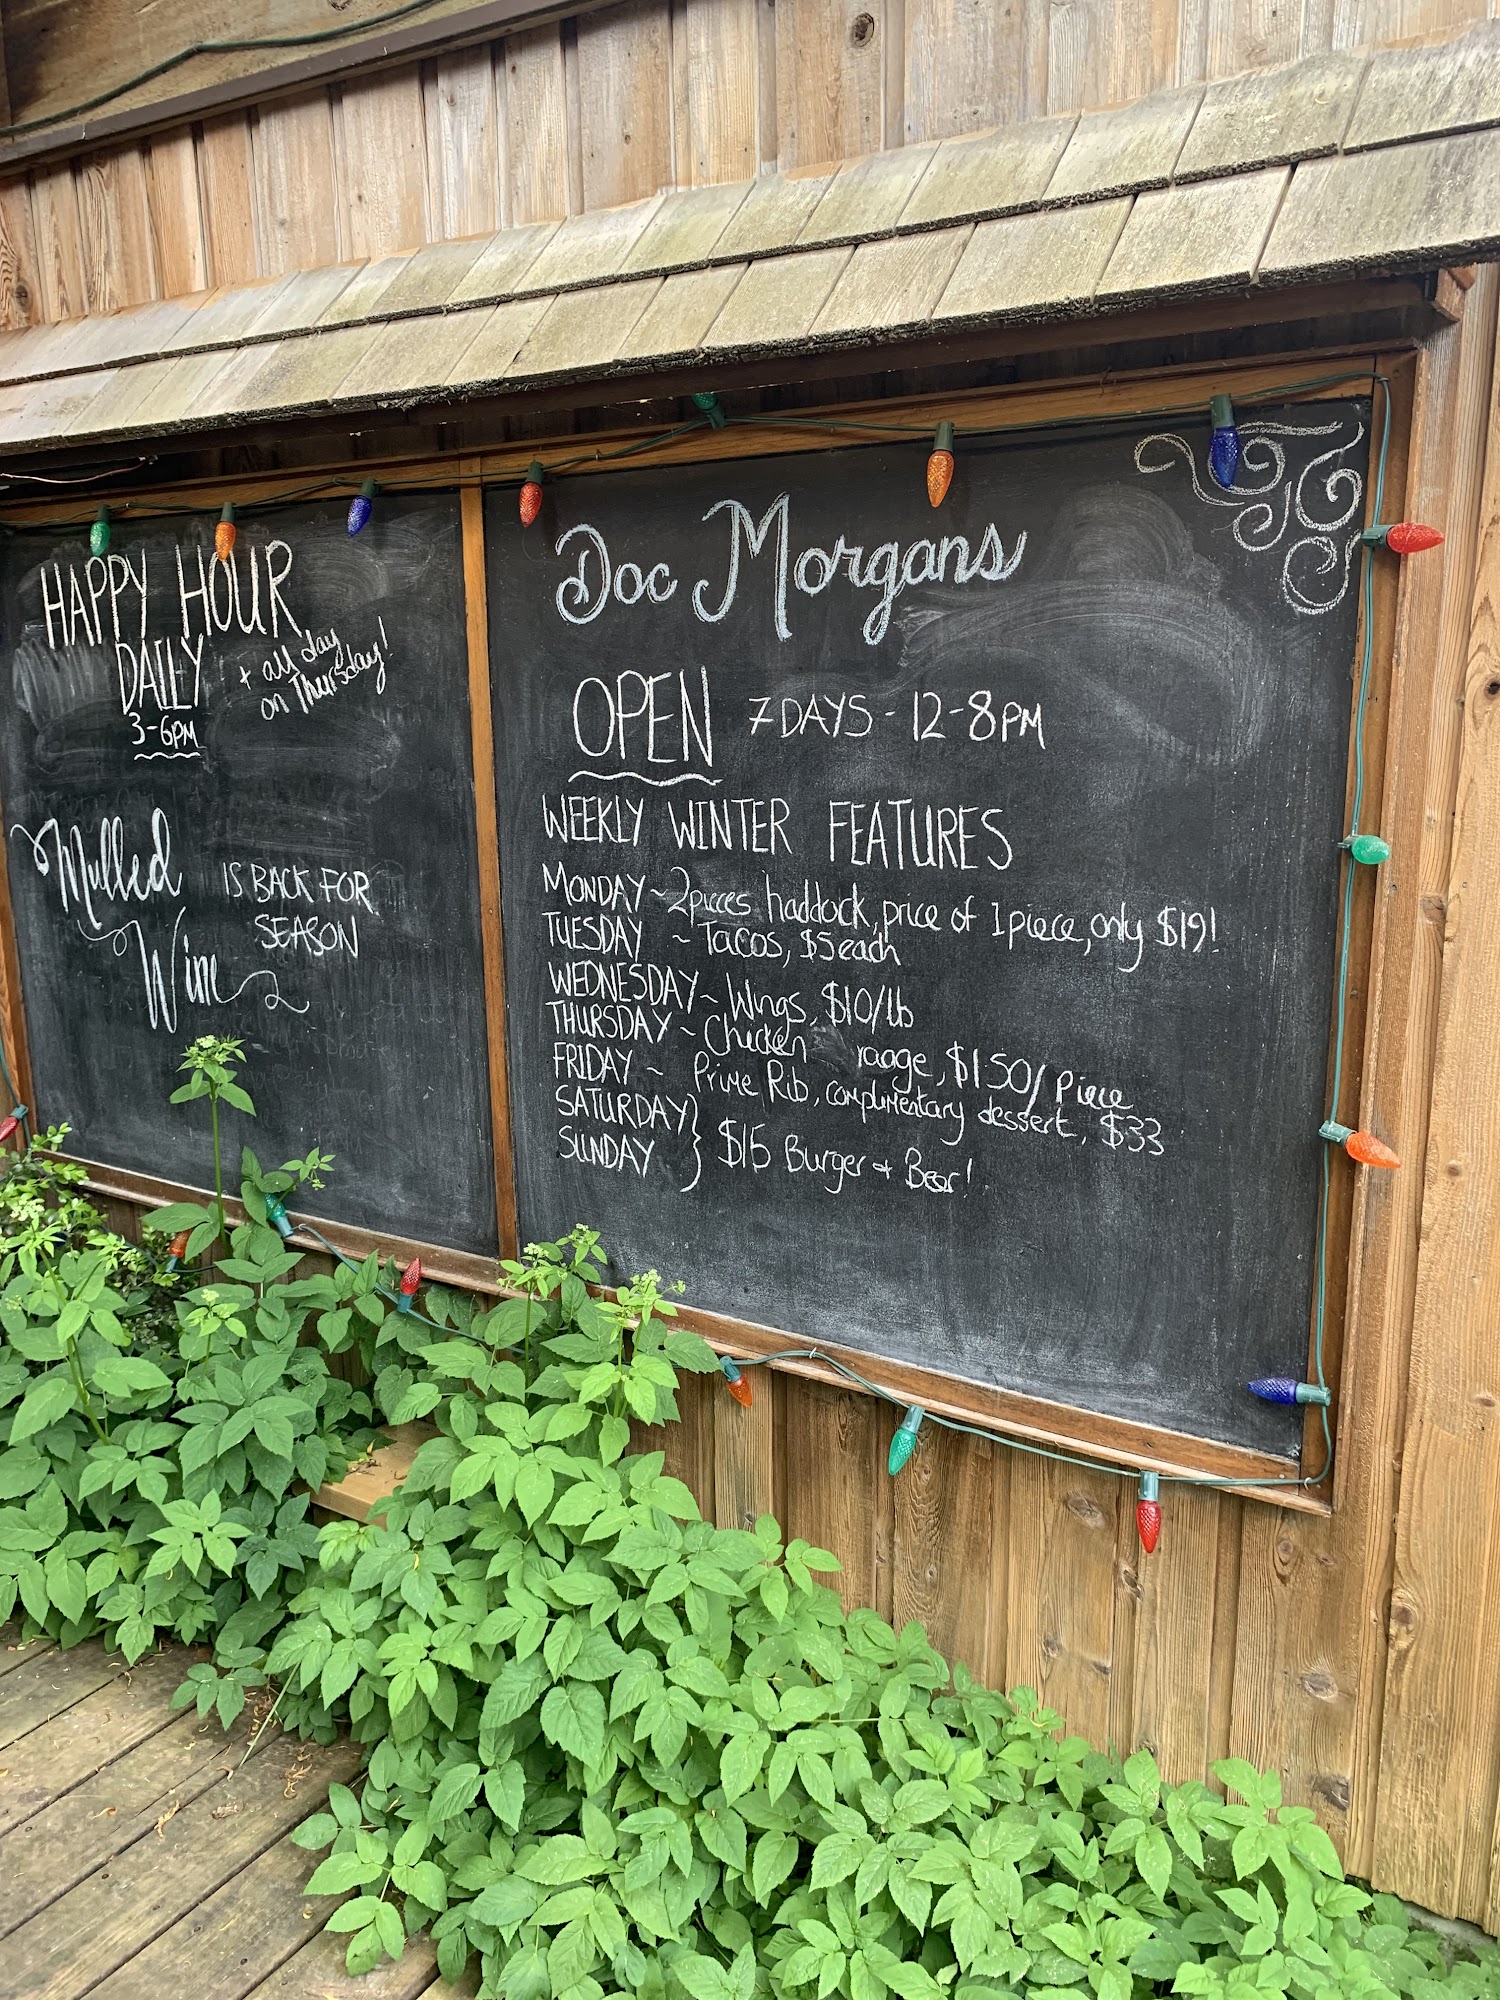 HAPPY HOUR
DAILY
3-6PM
+ all day
on Thursday!
Mulled
Wine
IS BACK FOR
SEASON
Doc Morgans
OPEN 7 DAYS - 12-8PM
WEEKLY WINTER FEATURES
MONDAY ~ 2pieces haddock, price of 1piece, only $19!
TUESDAY ~ Tacos, $5 each
WEDNESDAY ~ Wings, $10/lb
THURSDAY ~ Chicken, $1.50/piece
FRIDAY ~ Prime Rib, complimentary dessert, $33
SATURDAY
SUNDAY } $15 Burger & Beer!